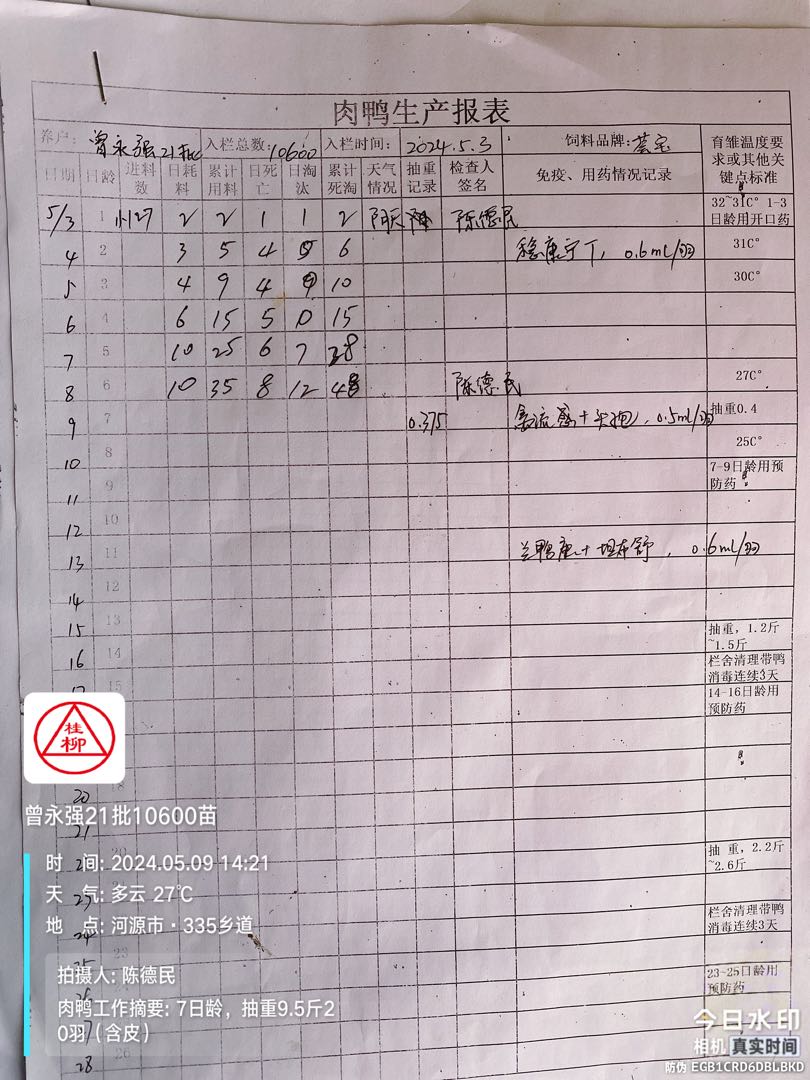 肉鸭生产报表
养户: 曾永强21批 入栏总数: 10600 入栏时间: 2024.5.3 饲料品牌: 育雏温度要求或其他关键点标准
日期 日龄 进料数 日耗料 累计用料 日死亡 日淘汰 累计死淘 天气情况 抽重记录 检查人签名 免疫、用药情况记录
5/3 1 小127 2 2 1 1 2 陈德民 32~31C° 1-3日龄用开口药
4 2 3 5 4 6 稳康宁T, 0.6mL/羽 31C°
5 3 4 9 4 10 30C°
6 4 6 15 5 0 15
7 5 10 25 6 7 28
8 6 10 35 8 12 48 陈德民 27C°
9 7 0.375 禽流感+ 0.5ml/羽 抽重0.4
10 8 25C°
11 9 7-9日龄用预防药
12 10
13 11 0.6mL/羽
14 12
15 13 抽重, 1.2斤~1.5斤
16 14 栏舍清理带鸭消毒连续3天
15 14-16日龄用预防药
18
20
21
抽 重, 2.2斤~2.6斤
23
24 栏舍清理带鸭消毒连续3天
23-25日龄用预防药
28 26
桂柳
曾永强21批10600苗
时 间: 2024.05.09 14:21
天 气: 多云 27℃
地 点: 河源市·335乡道
拍摄人: 陈德民
肉鸭工作摘要: 7日龄，抽重9.5斤2
0羽（含皮）
今日水印
相机 真实时间
防伪 EGB1CRD6DBLBKD